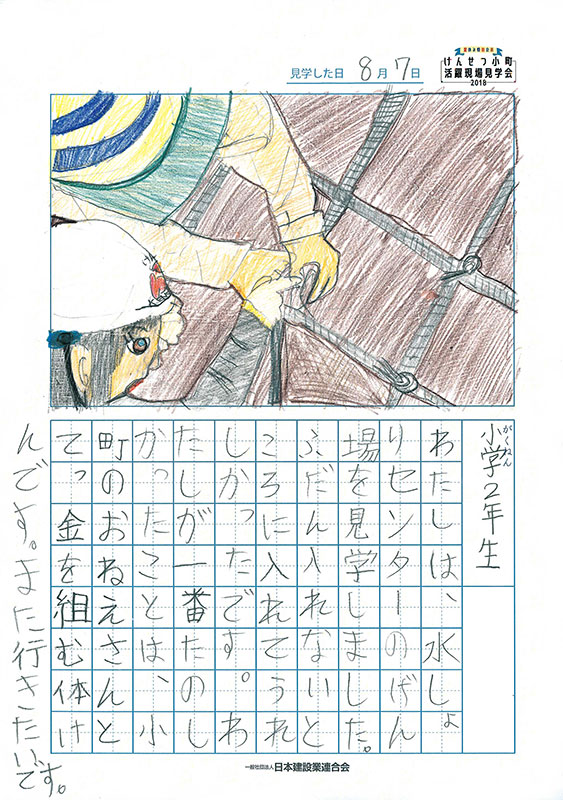 見学した日 8月7日
けんせつ小町
活躍現場見学会
2018
がくねん
小学2年生
わたしは、水しょ
りセンターのげん
場を見学しました。
ふだん入れないと
ころに入れてうれ
しかったです。わ
たしが一番たのし
かったことは、小
町のおねえさんと
てっ金を組む体け
んです。また行きたいです。
一般社団法人 日本建設業連合会